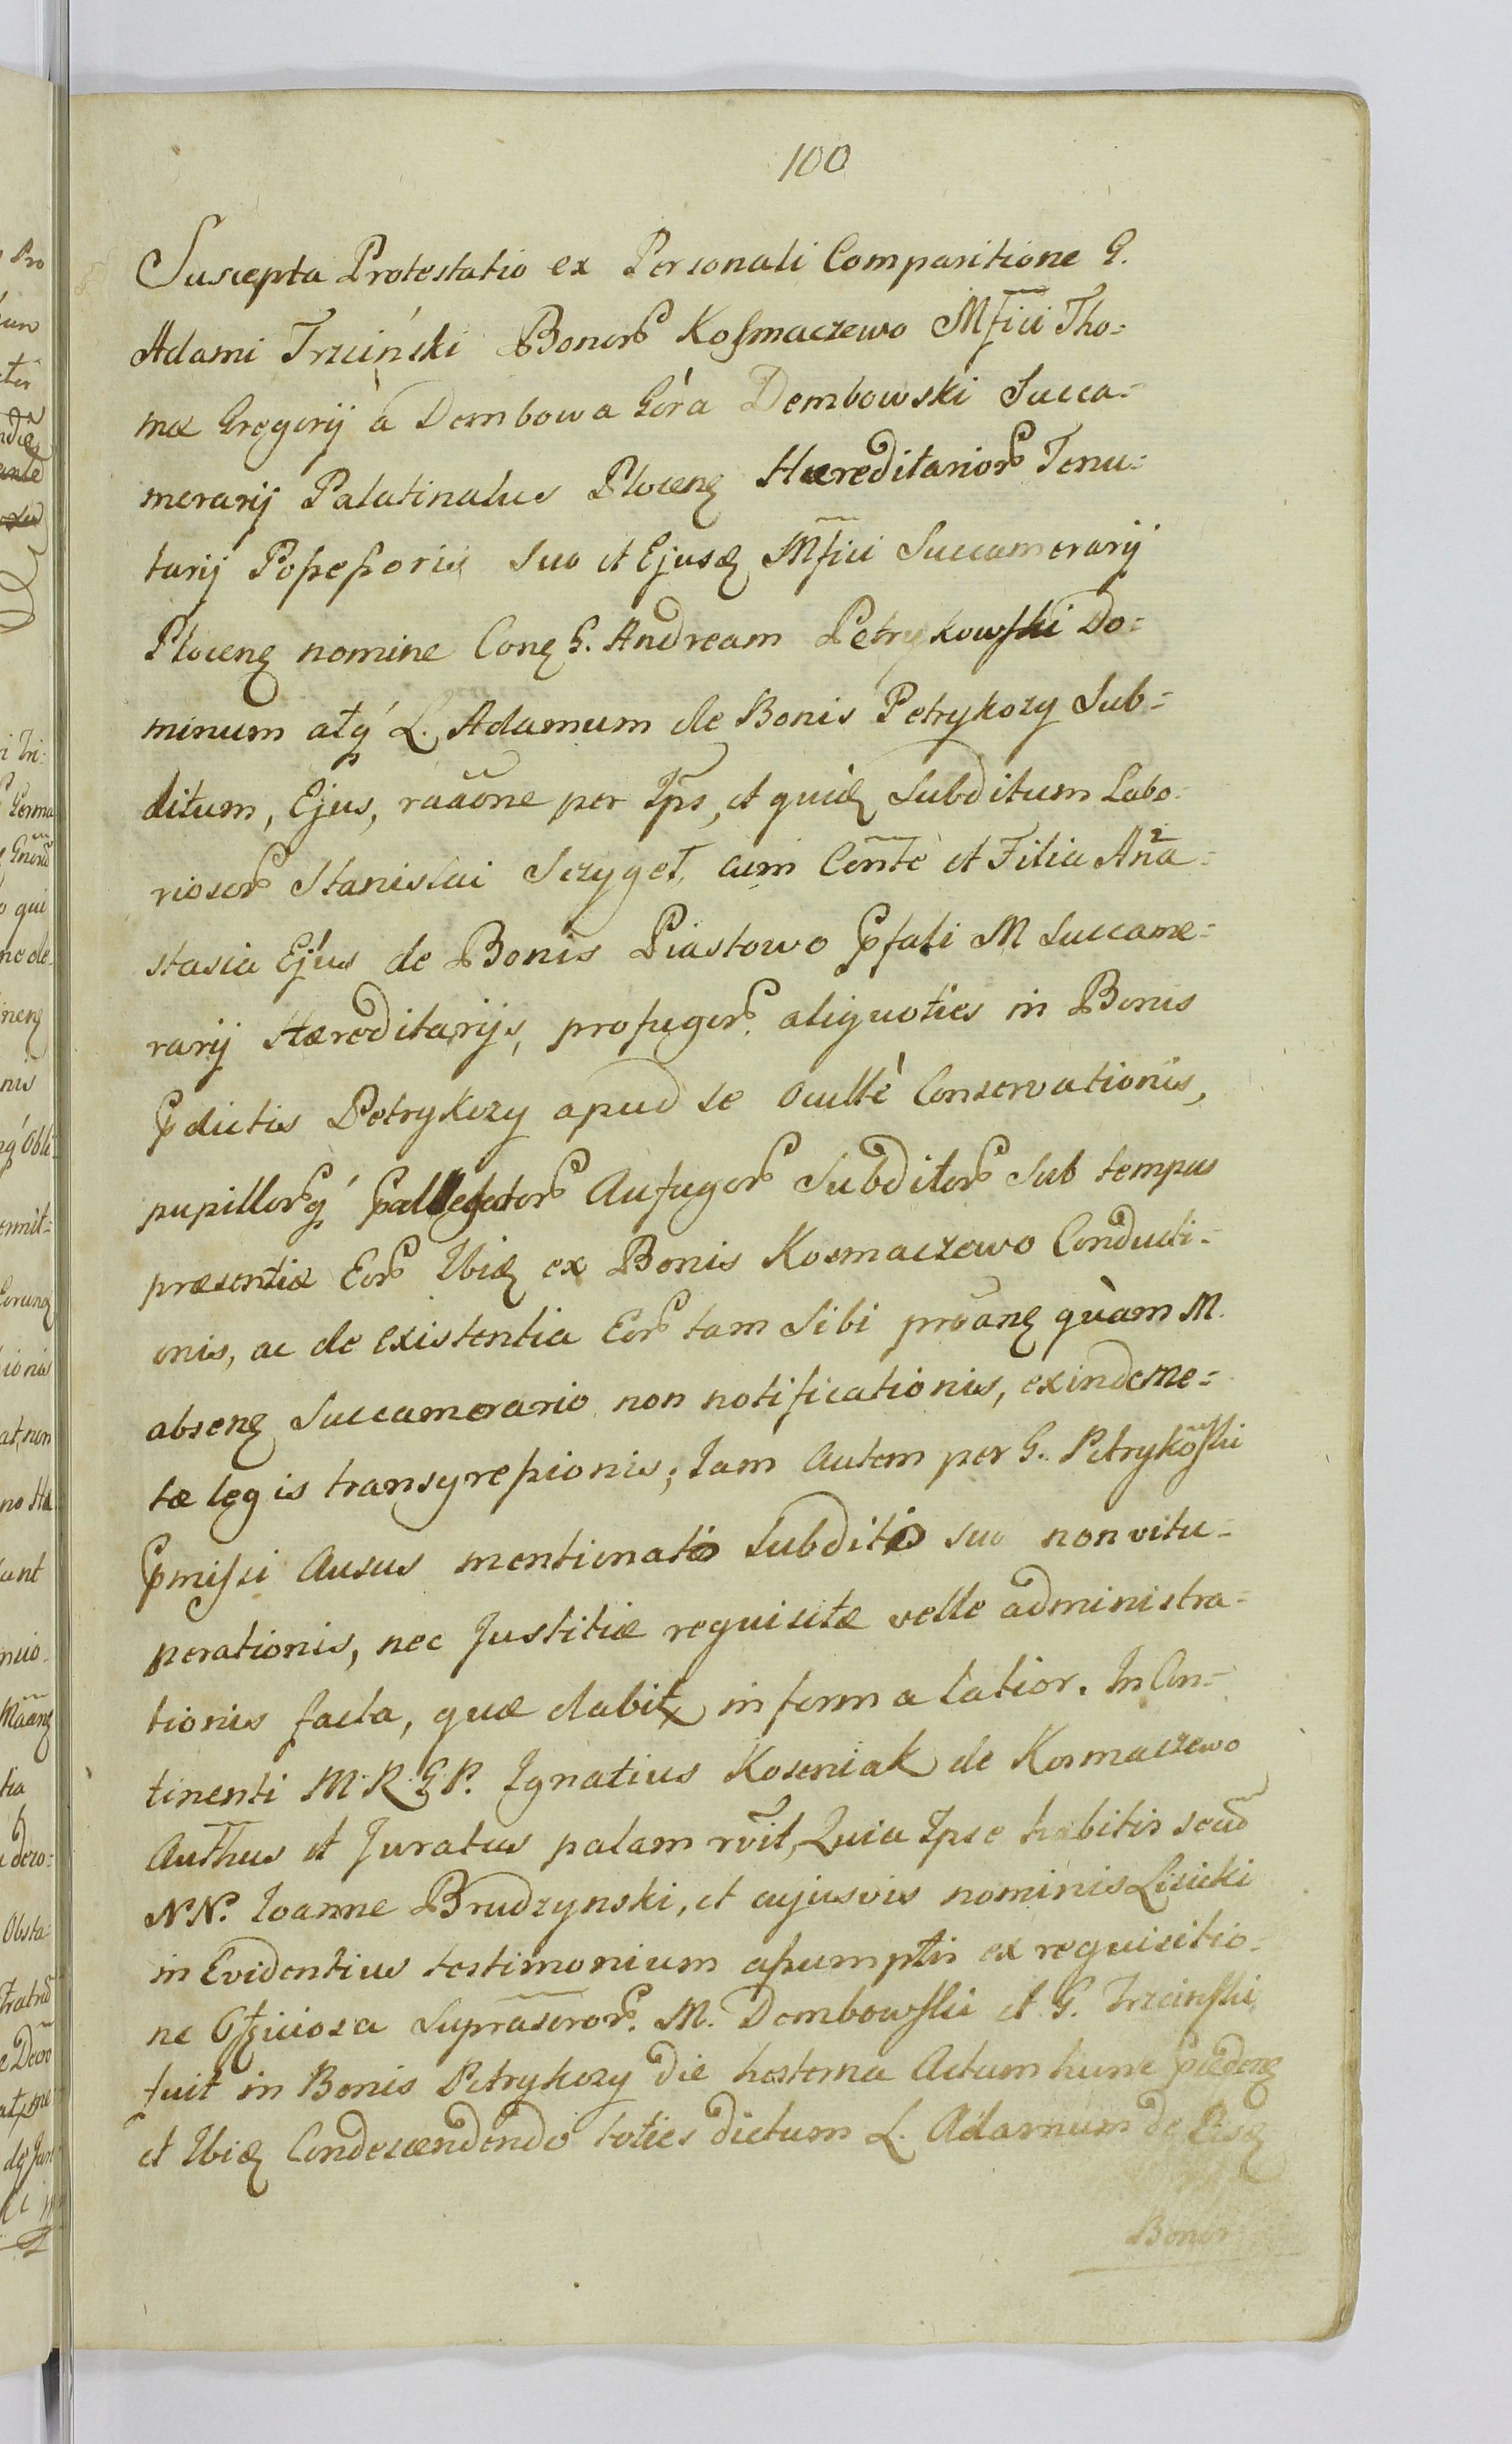 100
Suscepta Protestatio ex Personali Comparitione G.
Adami Trzciński Bonorꝝ Kosmaczewo Mfici Tho=
mæ Gregorij à Dembowa Góra Dembowski Succa=
merarij Palatinatus Plocenꝫ Hæreditariorꝝ Tenu=
tarij Possessoris suo et Ejusꝫ Mfici Succamerarij
Plocenꝫ nomine Conꝫ G. Andream Petrykowski Do=
minum atq́ L. Adamum de Bonis Petrykozy Sub=
ditum, Ejus, raãone per Ips, et quidꝫ Subditum Labo=
riosorꝝ Stanislai Szyget, cum Coñte et Filia Ana=
stasia Ejus de Bonis Piastowo Pfati M Succame=
rarij Hæreditarijs, profugorꝝ aliquoties in Bonis
Pdictis Petrykozy apud se Occultè Conservationis,
pupillorꝝq́ Pallegatorꝝ Aufugorꝝ Subditorꝝ Sub tempus
præsentiæ Eorꝝ Ibidꝫ ex Bonis Kosmaczewo Conducti=
onis, ac de existentia Eorꝝ tam Sibi proãnꝫ quàm M.
absenꝫ Succamerario non notificationis, exinde me=
tæ legis transgressionis; Jam Autem per G. Petrykoski
Pmissi Ausus mentionato Subdito suo non vitu=
perationis, nec Justitiæ requisitæ velle administra=
tionis facta, quæ dabitꝝ in forma latior. In Con=
tinenti M. R. G. P. Ignatius Koseniak de Kosmaczewo
Authus et Juratus palam rvit, Quia Ipse habitis secũ
NN. Joanne Brudzynski, et cujusvis nominis Lisicki
in Evidentius testimonium assumptis ex requisitio=
ne Officiosa Suprascrorꝝ. M. Dembowski et G. Trzcinski,
fuit in Bonis Petrykozy die hesterna Actum hunc Pcedenꝫ
et Ibidꝫ Condescendendo toties dictum L. Adamum de Iisdꝫ
Bonis